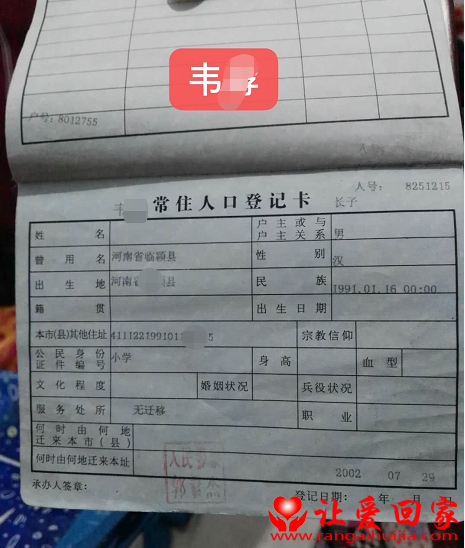 韦
户号: 8012755
人号: 8251215
常住人口登记卡
长子
姓名
户主或与户主关系 男
曾用名 河南省临颍县
性别
汉
出生地 河南省 县
民族
1991.01.16 00:00
籍贯
出生日期
本市(县)其他住址 4111221991011 5
宗教信仰
公民身份证件编号 小学
身高
血型
文化程度
婚姻状况
兵役状况
服务处所 无迁移
职业
何时由何地迁来本市(县)
何时由何地迁来本址
2002 07 29
承办人签章:
登记日期: 年 月 日
让爱回家
www.rangaihuijia.com